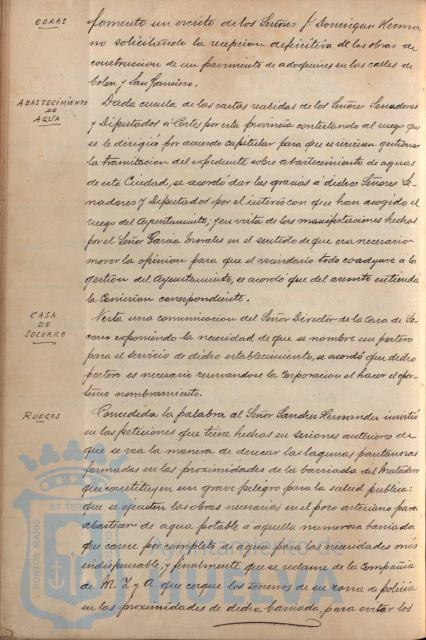 OBRAS
fomento un escrito de los Señores J. Dominguez Herma
no solicitando la recepcion definitiva de las obras de
construccion de un pavimento de adoquines en las calles de
Colon y San Francisco.
ABASTECIMIENTO
DE
AGUA
Dada cuenta de las cartas recibidas de los Señores Senadores
y Diputados á Cortes por esta provincia contestando al ruego que
se le dirigió por acuerdo capitular para que se sirvieran gestionar
la tramitacion del expediente sobre abastecimiento de aguas
de esta Ciudad, se acordó dar las gracias a dichos Señores Se
nadores y Diputados por el interés con que han acogido el
ruego del Ayuntamiento; y en vista de las manifestaciones hechas
por el Señor Garcia Morales en el sentido de que era necesario
mover la opinion para que el vecindario todo coadyuve a la
gestion del Ayuntamiento, se acordó que del asunto entienda
la Comision correspondiente.
CASA
DE
SOCORRO
Vista una comunicacion del Señor Director de la Casa de So
corro exponiendo la necesidad de que se nombre un portero
para el servicio de dicho establecimiento, se acordó que dicho
portero es necesario reservandose la Corporacion el hacer el opor
tuno nombramiento.
RUEGOS
Concedida la palabra al Señor Sanchez Hernandez insistió
en las peticiones que tiene hechas en sesiones anteriores de
que se vea la manera de desecar las lagunas pantanosas
formadas en las proximidades de la barriada del Matadero
que constituyen un grave peligro para la salud publica:
que se ejecuten las obras necesarias en el pozo artesiano para
abastecer de agua potable a aquella numerosa barriada
que carece por completo de agua para las necesidades más
indispensable, y finalmente que se reclame de la Compañia
de M. Z y A que cerque los terrenos de su zona de policia
en las proximidades de dicha barriada para evitar los
PORTUS MARIS
ET TERRAE
Ayuntamiento de
HUELVA